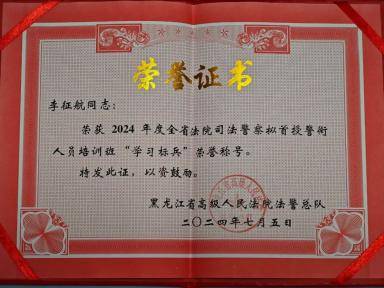 荣誉证书
李征航同志：
荣获 2024 年度全省法院司法警察拟首授警衔
人员培训班“学习标兵”荣誉称号。
特发此证，以资鼓励。
黑龙江省高级人民法院法警总队
二〇二四年七月五日